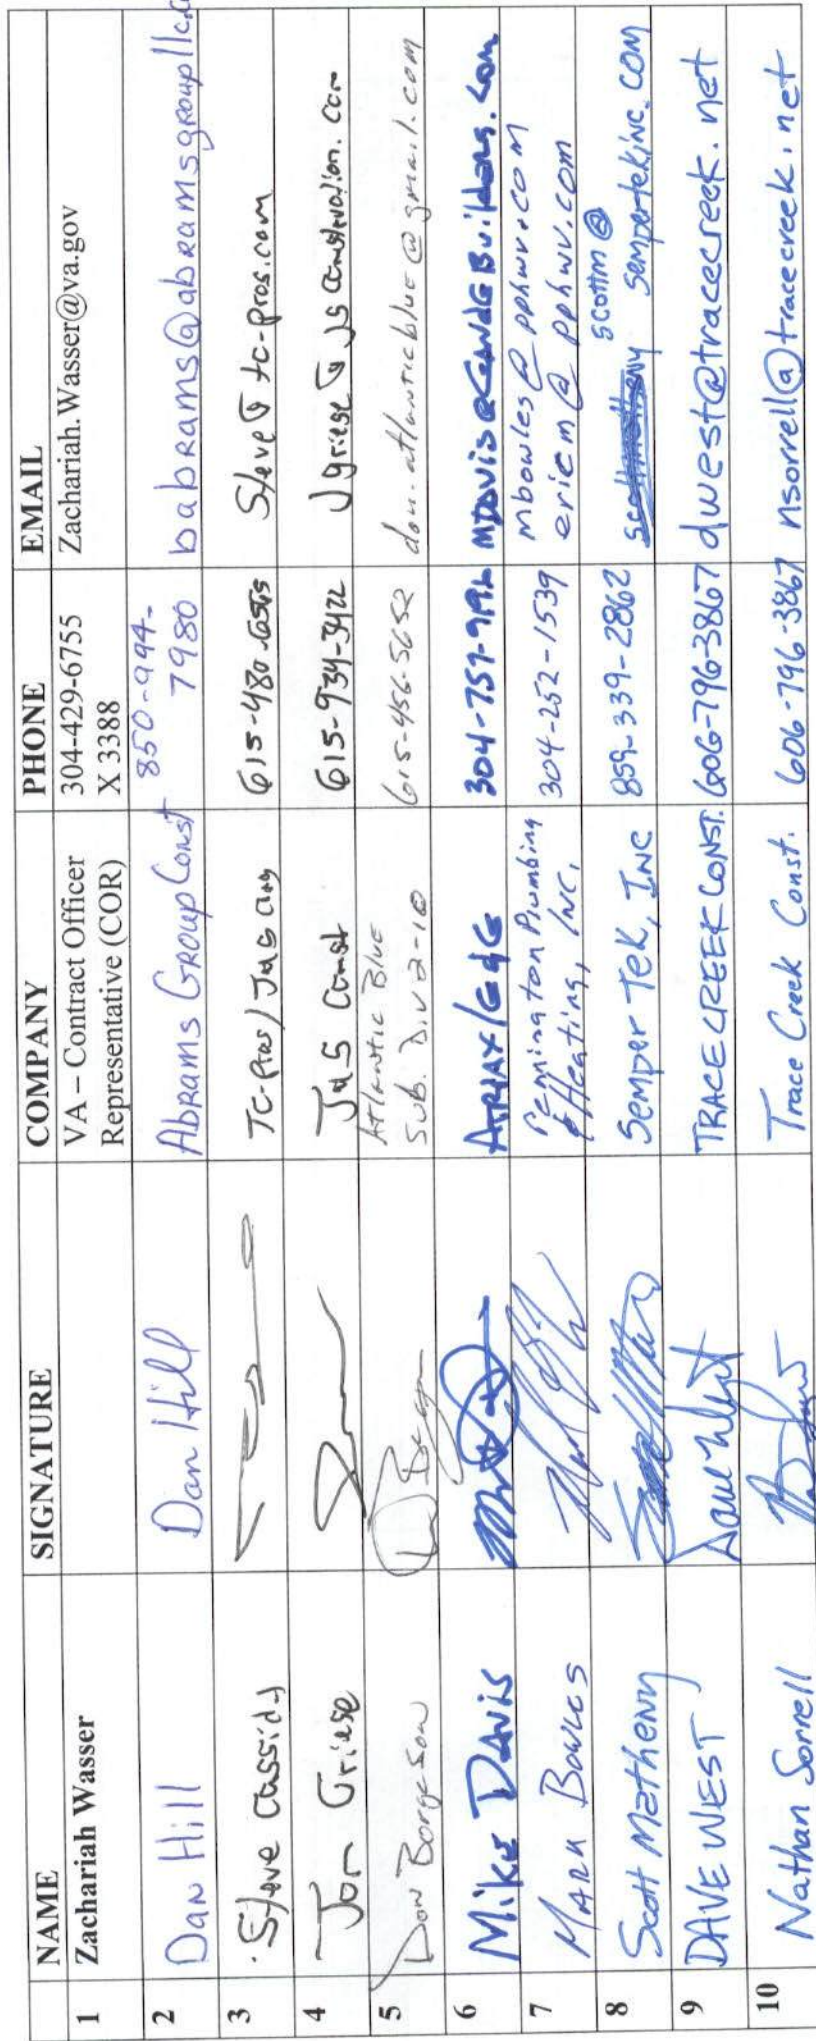 NAME SIGNATURE COMPANY PHONE EMAIL
1 Zachariah Wasser VA – Contract Officer 304-429-6755 Zachariah.Wasser@va.gov
Representative (COR) X 3388
2 Dan Hill Dan Hill Abrams Group Const 850-994- babrams@abramsgroupllc.co
7980
3 Steve Cassidy TC-Pros/J&S Cons 615-480-6565 Steve@tc-pros.com
4 Jon Griese J&S Const 615-934-3422 Jgriese@jsconstruction.com
5 Don Borgeson Atlantic Blue 615-456-5652 don.atlanticblue@gmail.com
Sub. Div 2-10
6 Mike Davis 304-757-9196
7 Mark Bowles Pennington Plumbing 304-252-1539 mbowles@pphwv.com
& Heating, INC, ericm@pphwv.com
8 Scott Matheny Semper Tek, INC 859-339-2862 scottm@
sempertekinc.com
9 DAVE WEST Dave West TRACE CREEK CONST. 606-796-3867 dwest@tracecreek.net
10 Nathan Sorrell Trace Creek Const. 606-796-3867 nsorrell@tracecreek.net